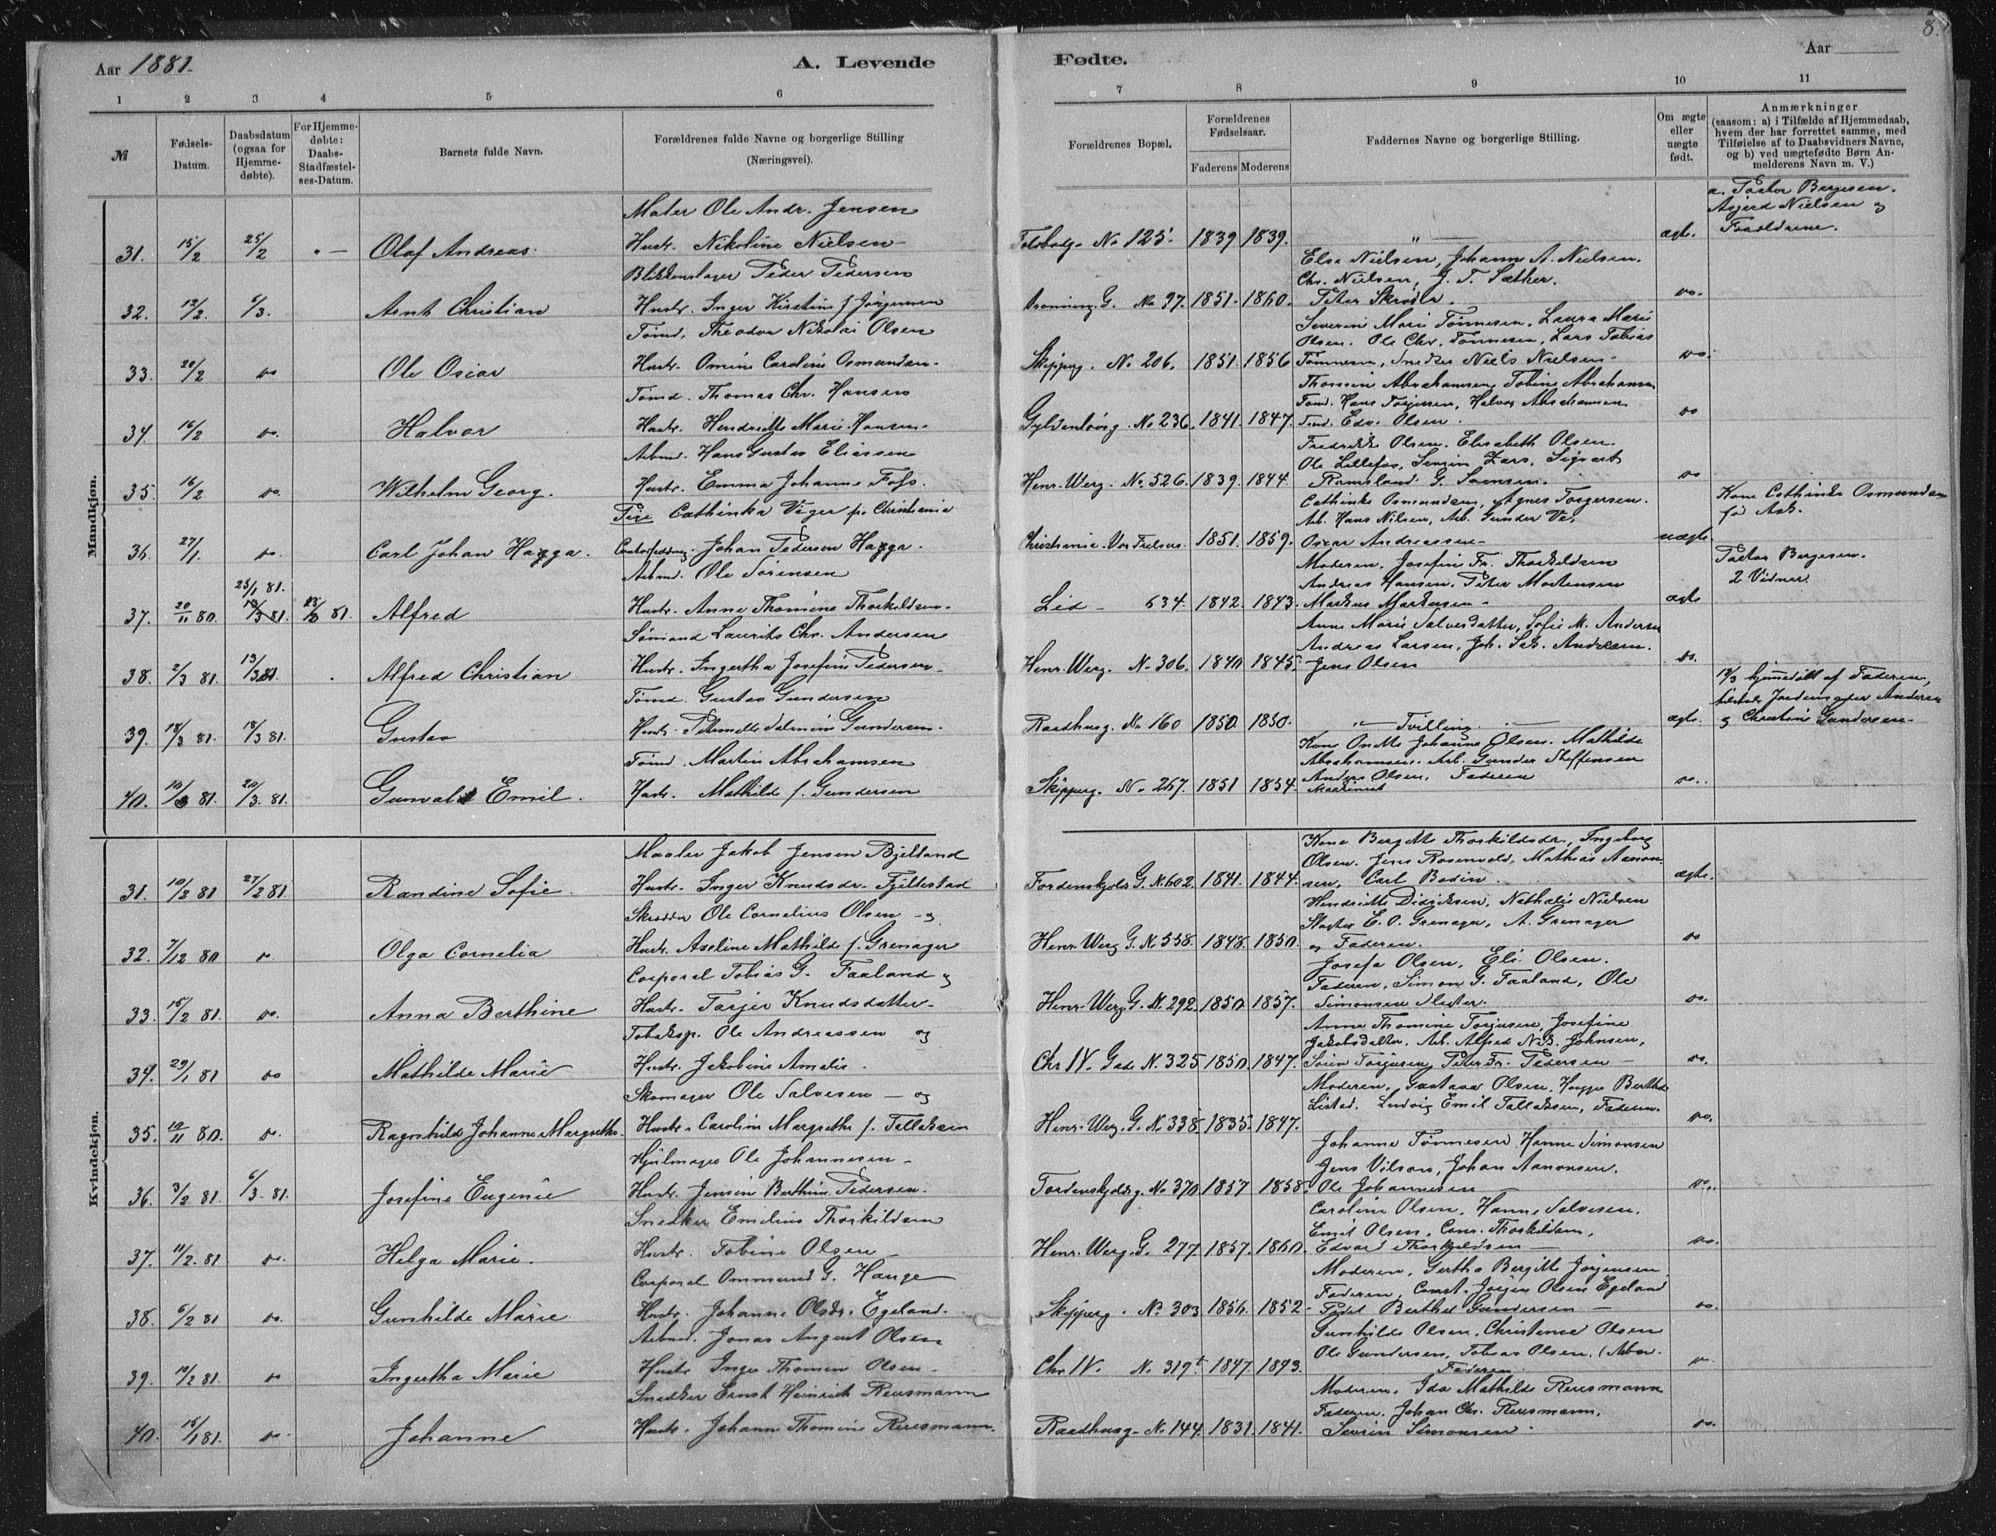 Aar 1881.
A. Levende
Fødte.
Aar
8.
1 2 3 4 5 6 7 8 9 10 11
№
Fødsels-
Datum.
Daabsdatum
(ogsaa for
Hjemme-
døbte).
For Hjemme-
døbte:
Daabs-
Stadfæstel-
ses-Datum.
Barnets fulde Navn.
Forældrenes fulde Navne og borgerlige Stilling
(Næringsvei).
Forældrenes Bopæl.
Forældrenes
Fødselsaar.
Faderens Moderens
Faddernes Navne og borgerlige Stilling.
Om ægte
eller
uægte
født.
Anmærkninger
(saasom: a) i Tilfælde af Hjemmedaab,
hvem der har forrettet samme, med
Tilføielse af to Daabsvidners Navne,
og b) ved uægtefødte Børn An-
melderens Navn m. V.)
Mandkjøn.
Mater Ole Andr. Jensen
a. Pastor Bergesen.
Asjerd Nielsen og
31. 15/2 25/2 Olaf Andreas. Hustr. Nikoline Nielsen Toldbodg. No 125. 1839 1839. " ægte. Forældrene.
Blikkenslager Peder Pedersen
Else Nielsen, Johanne A. Nielsen.
Chr. Nielsen, J. T. Sæther.
32. 12/2 6/3. Arnt Christian Hustr. Inger Kirstine f. Jørgensen Dronning. G. No 97. 1851. 1860. Peter Skrøder. do.
Tømd. Theodor Nikolai Olsen
Severine Marie Tønnesen, Laura Marie
Olsen. Ole Chr. Tønnesen, Lars Tobias
33. 20/2 do Ole Oscar Hustr. Omine Caroline Osmundsen. Skipperg. No 206. 1851. 1856 Tønnesen, Snedker Niels Nielsen. do.
Tømd. Thomas Chr. Hansen
Thomine Abrahamsen, Tobine Abrahamsen
Tømd. Hans Torjusen, Halvor Abrahamsen
34. 16/2 do. Halvor Hustr. Hendrikke Marie Hansen. Gyldenløvsg. No 236. 1841. 1847. Tømd. Edv. Olsen. do
Arbmd. Hans Gustav Eliassen
Fredrikke Olsen. Elisabeth Olsen.
Ole Lillefos, Lars, Sigvart
35. 16/2 do. Wilhelm Georg. Hustr. Emma Johanne Foss. Henr. Werg. No. 526. 1839. 1844. Ramsland G. Svensen. do
Pige Cathinka Viger fr. Christiania
Cathinka Osmundsen, Agnes Torgersen.
Arb. Hans Nilsen, Arb. Gunder Ve,
Kone Cathinka Osmundsen
fø Ask.
36. 27/1. do. Carl Johan Hagga. Johan Pedersen Hagga. Christiania. Vor Frelsers. 1851. 1859. Oscar Andreassen uægte.
Arbmd. Ole Sørensen
Moderen. Josefine Fr. Thorkildsen
Andreas Hansen, Peter Mortensen
Pastor Bergesen.
2 Vidner.
25/1 81.
37. 20/11 80. 13/3 81. 13/3 81 Alfred Hustr. Anne Thomine Thorkildsen. Lid 634. 1842. 1843. Markus Markusen ægte
Sømand Laurits Chr. Andersen
Anne Marie Salvesdatter, Sofie M. Andersen
Andreas Larsen, Joh. Andersen.
38. 2/3 81. 13/3 81. Alfred Christian Hustr. Ingertha Josefine Pedersen Henr. Werg. No. 306. 1840. 1845. Jens Olsen do.
Tømd. Gustav Gundersen
13/3 hjemmedøbt af Faderen,
tilstede Jordemoder Andersen
39. 13/3 81. 13/3 81. Gustav Hustr. Petternelle Salmine Gundersen. Raadhusg. No. 160 1850. 1850. Tvilling. ægte. og Christine Gundersen
Tømd. Martin Abrahamsen
Kone Onette Johanne Olsen. Mathilde
Abrahamsen. Arb. Gunder Steffensen
Anders Olsen, Faderen
40. 10/3 81. 20/3. 81. Gunvald Emil. Hustr. Mathilde f. Gundersen Skipperg. No. 267. 1851 1854. Maskinist do.
Kvindekjøn.
Maaler Jakob Jensen Bjelland
Kone Bergitte Thorkildsdr., Ingeborg
Olsen. Jens Rosenvold, Mathias Aanon-
31. 10/2 81 27/2 81. Randine Sofie. Hustr. Inger Knudsdr. Fjellestad Tordenskjolds G. N. 602. 1841. 1844. sen, Carl Bodin. ægte.
Skrædder Ole Cornelius Olsen og
Hendrikke Didriksen, Nathalie Nielsen
E. O. Grenager, A. Grenager
32. 7/12 80 do Olga Cornelia Hustr. Aseline Mathilde f. Grenager Henr. Werg. G. N. 558. 1848. 1850. og Faderen. do
Corporal Tobias G. Faaland og
Josefa Olsen, Eli Olsen.
Faderen, Simon G. Faaland, Ole
33. 15/2 81. do. Anna Berthine Hustr. Tarjer Knudsdatter. Henr. Werg. G. N. 292. 1850. 1857. Simonsen do.
Tobaksp. Ole Andreassen og
Anne Thomine Torjusen, Josefine
Jakobsdatter. Arb. Alfred N. B. Johnsen,
34. 29/1 81 do Mathilde Marie Hustr. Jakobine Amalie. Chr IV. Gade N. 325 1850. 1847. Søren Torjusen, Peter Fr. Pedersen do.
Skomager Ole Salvesen og
Moderen, Gustava Olsen, Berthe
Listad. Ludvig Emil Tallaksen, Faderen.
35. 10/11 80. do. Ragnhilde Johanne Margrethe Hustr. Caroline Margrethe f. Tallaksen Henr. Werg. G. N. 338. 1835. 1847. do.
Hjulmager Ole Johannesen
Johanne Tønnesen Hanne Simonsen
Jens Vilson, Johan Aanonsen.
36. 3/2 81. 6/3. 81. Josefine Eugenie Hustr. Jensine Berthine Pedersen. Tordenskjoldsg. No. 370 1857 1858. Ole Johannesen do.
Snedker Emilius Thorkildsen
Caroline Olsen, Hanne Salvesen.
Emil Olsen, Thorkildsen,
37. 11/2. 81 do. Helga Marie. Hustr. Tobine Olsen Henr. Werg. G. 277. 1857. 1860. Edvard Thorkildsen do.
Corporal Ommund G. Hauge
Moderen, Gertha Bergitte Jørgensen
Faderen, Const. Jørgen Olsen Egeland
38. 6/2 81 do. Gunhilde Marie Hustr. Johanne Olsdr. Egeland. Skipperg. No. 303 1856. 1852 Berthel Gundersen do.
Arbmd. Jonas August Olsen
Gunhilde Olsen, Christence Olsen
Ole Gundersen, Tobias Olsen, (Arbr.
39. 12/2 81. do Ingertha Marie Hustr Inger Thomine Olsen. Chr IV. N. 319 1847. 1843. Faderen. do.
Snedker Ernst Heinrich Reusmann
Moderen, Ida Mathilde Reusmann
Faderen. Johan Chr. Reusmann.
40. 15/1 81. do Johanne Hustr. Johanne Thomine Reusmann. Raadhusg. No 144. 1831. 1841. Severin Simonsen. do.